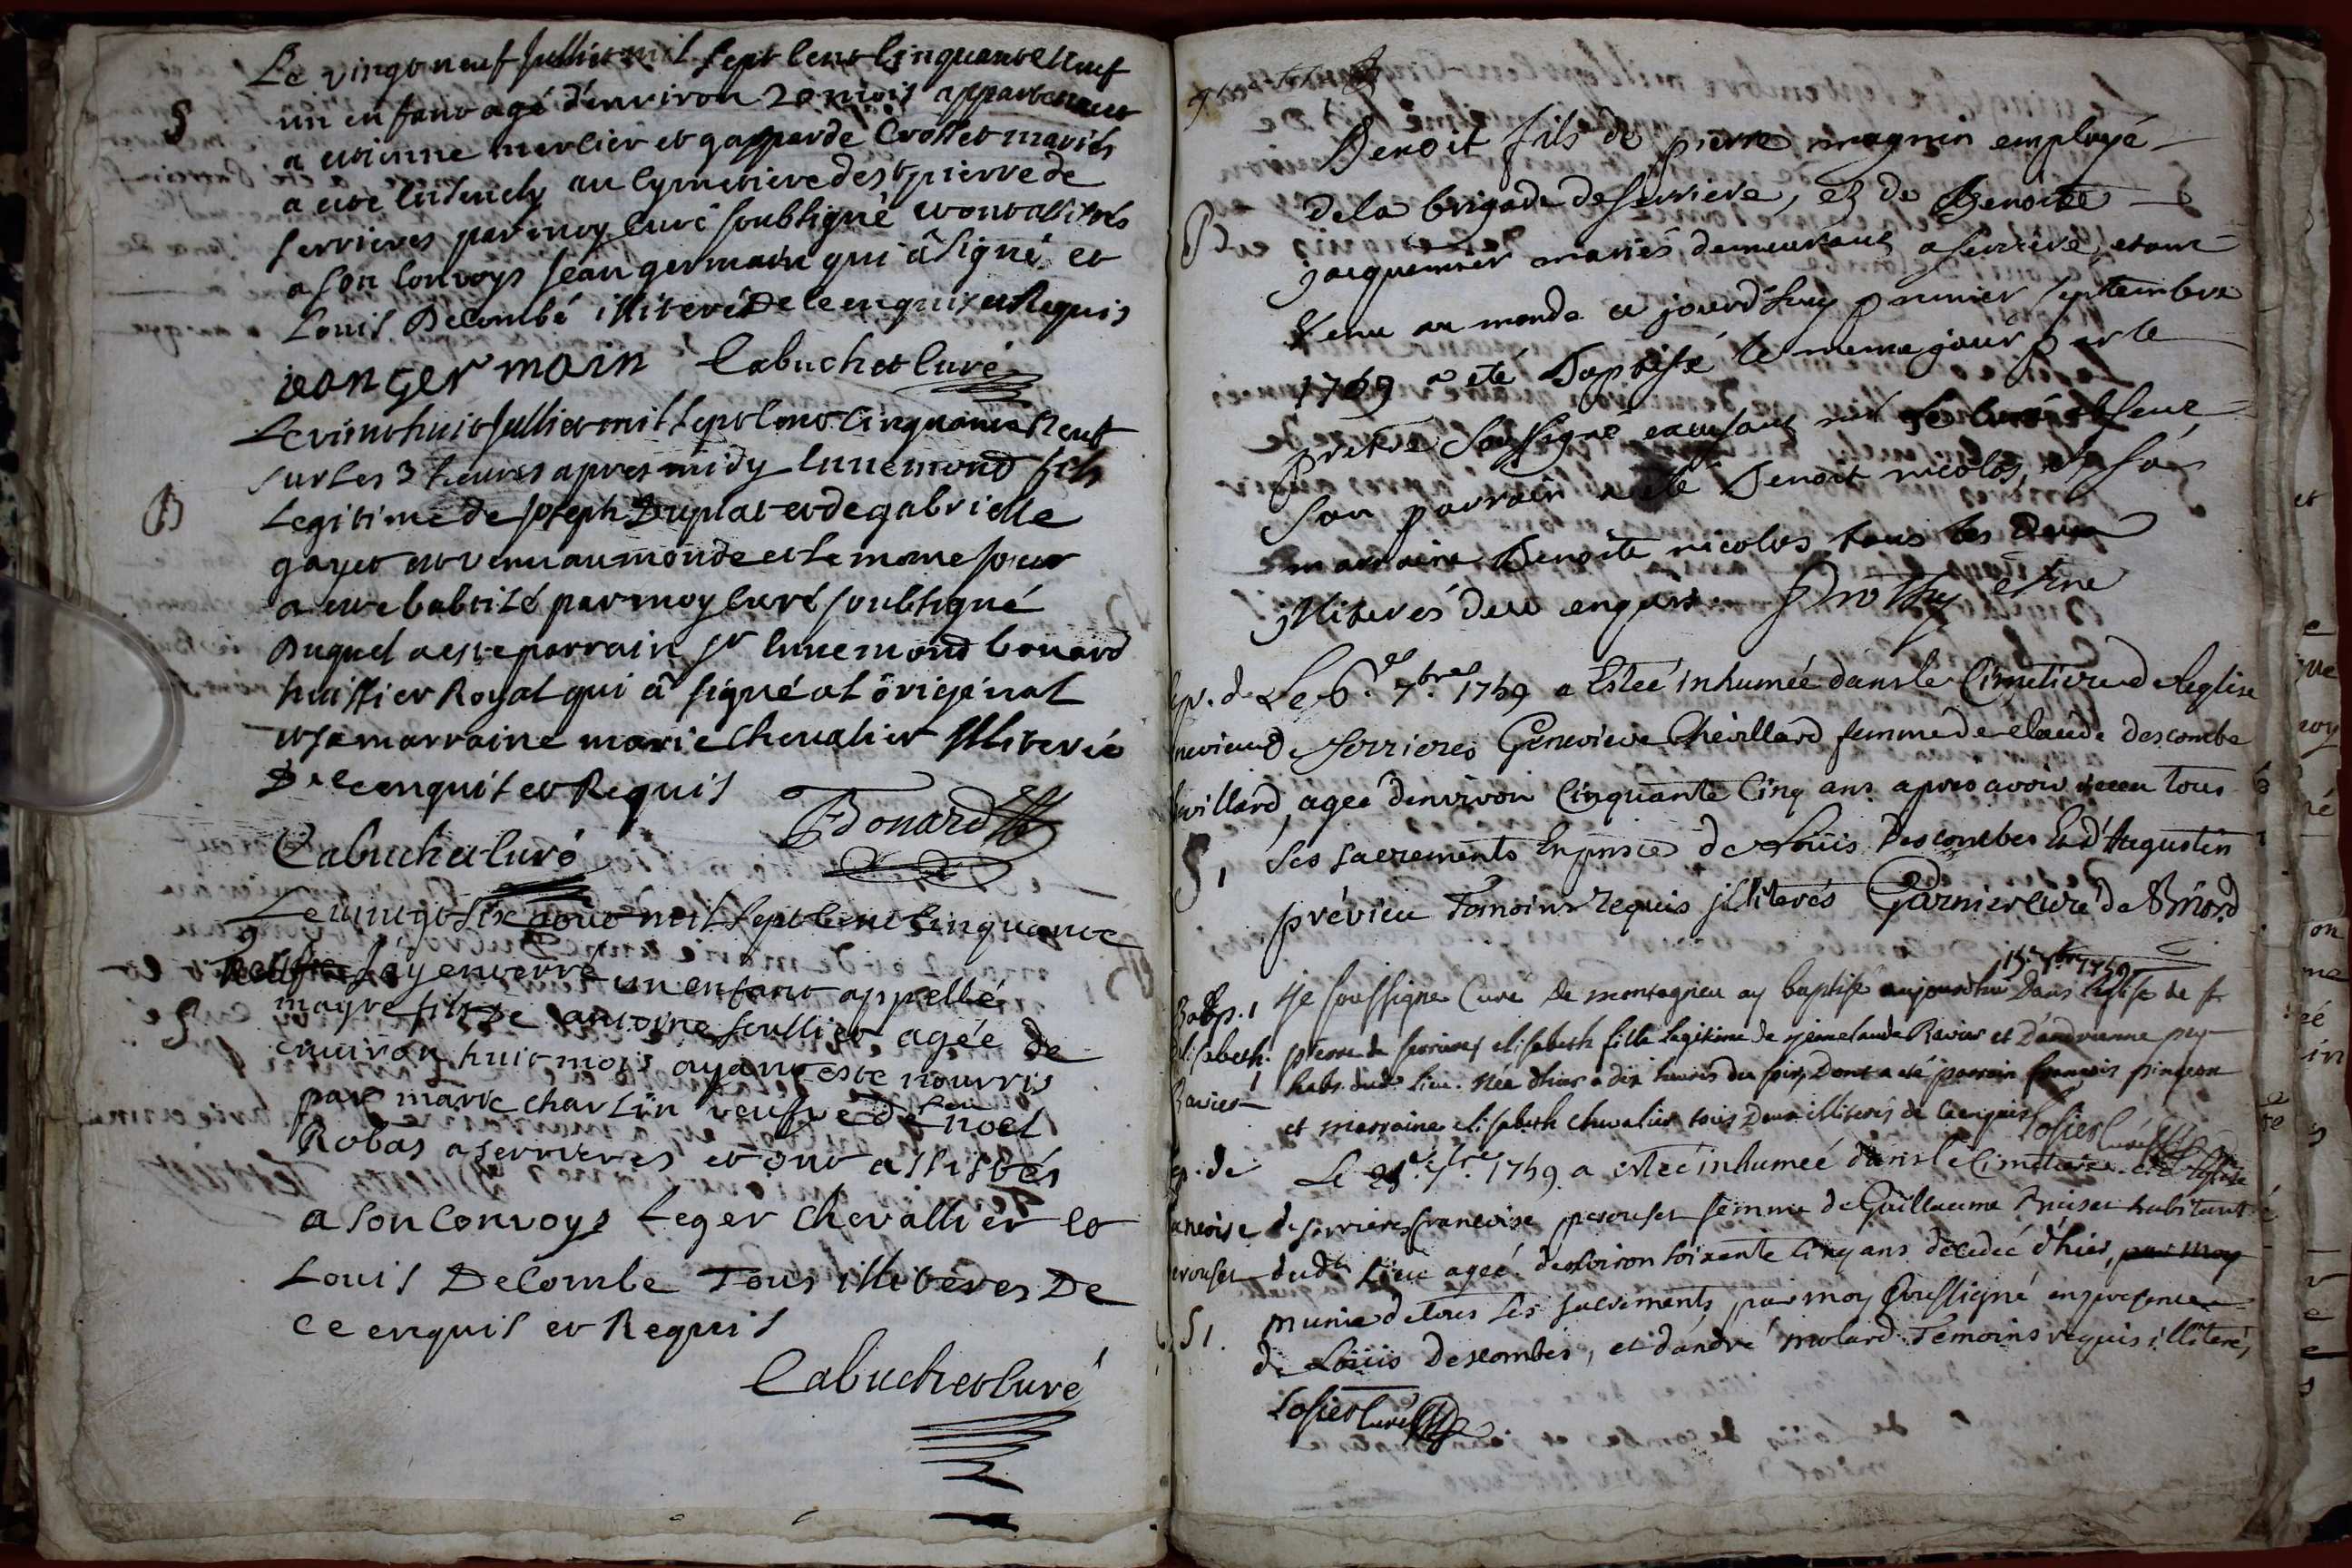 Le vingt neuf Jullietmil sept cent Cinquante Neuf
S
un enfant agé d'environ 20 mois appartenant
a etienne mercier et gasparde Crottet mariés
a eté Entendy au Cymetiere de st pierre de
serrieres par moy curé soubsigné et ont assistés
a son Convoys Jean germain qui â signé et
Louis Decombé illiteré De ce enquis et Requis
iean Ger main Cabuchet Curé
Le vint huit Julliet mil sept Cent Cinquante Neuf
sur Les 3 heures apres midy Ennemond fils
B
Legitime de Joseph Duplat et de gabrielle
gayet est venu au monde et le meme Jour
a eté babtisé par moy curé soubsigné
Duquel a esté parrain sr Ennemond bouard
huissier Royal qui â signé al ôriginal
et sa marraine marie Chevalier Illiterée
De ce enquis et Requis
EBouard
Cabuchet Curé
Le vingt six aout mil sept Cent Cinquante
Neuf J'ay enterré un enfant appellé
S
mayre fils De antoine soullier agée De
environ huit mois ayant esté nourris
par marie charlin veufve De feu noel
Robas a serrieres et ont assistés
a son Convoys Leger Chevallier et
Louis DeCombe Tous illiteres De
ce enquis et Requis
Cabuchet Curé
Benoit fils de pierre magnin employé
B
de la brigade de serriere, et de Benoite
jacquemier mariés demeurant a serriere, etant
Venu au monde ce jourd'huy premier septembre
1759 a eté Baptisé le meme jour par le
prêtre soussigné en l'absence
son parrain a eté Benoit nicolas, et sa
marraine Benoite nicolas tous les deux
jlliterés de ce enquis
Le 6.e 7.bre 1759 a Estée inhumée dans le Cimetiere de Leglise
de serrieres Genevieve Chevillard femme de Claude descombe
agée denviron Cinquante Cinq ans apres avoir receu tous
S,
ses sacrements En pnsce de Loüis Descombes Et d'Augustin
prévieu Temoins requis jlliterés Garnier curé de
15. 7bre 1759
Bapp. Je soussigné Curé De montagnieu ay baptisé aujourdhuy Dans l'eglise de st
elisabeth. pierre de serrieres elisabeth fille Legitime de Ravier et D'andrienne
Ravier habt dudt Lieu. Née d'hier a dix heures du soir, Dont a eté parrain françois pingeon
et marraine elisabeth chevalier tous Deux illiterés de ce enquis Losier Curé
Le 7.bre 1759. a estée inhumée dans le Cimetiere de Leglise
de serrieres francoise perouset femme de Guillaume habitant
dudt Lieu agée denviron soixante Cinq ans décedée d'hier, par moy
S,
munie de tous ses sacrements, par moy soussigné en presence
de Loüis Descombes, et d'andré molard Temoins requis illiterés,
Losier Curé